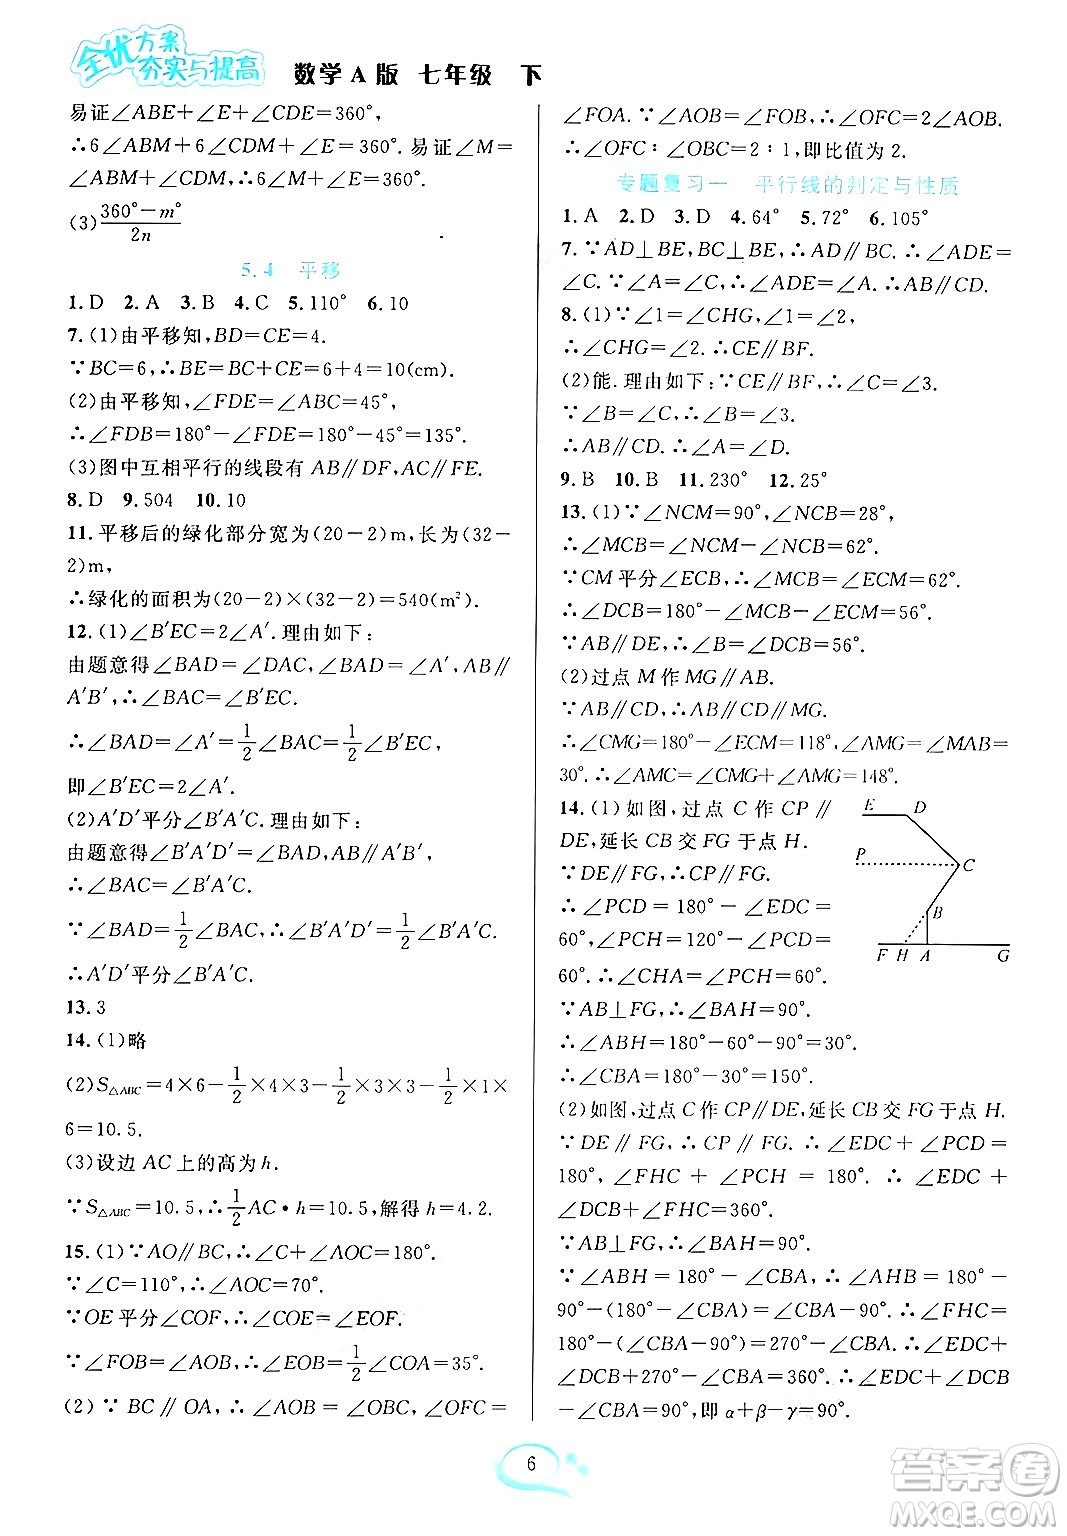 全优方案
夯实与提高
数学A版 七年级 下
易证∠ABE+∠E+∠CDE=360°,
∴6∠ABM+6∠CDM+∠E=360°.易证∠M=
∠ABM+∠CDM,∴6∠M+∠E=360°.
(3)360°-m°/2n
5.4 平移
1.D 2.A 3.B 4.C 5.110° 6.10
7.(1)由平移知,BD=CE=4.
∵BC=6,∴BE=BC+CE=6+4=10(cm).
(2)由平移知,∠FDE=∠ABC=45°,
∴∠FDB=180°-∠FDE=180°-45°=135°.
(3)图中互相平行的线段有AB∥DF,AC∥FE.
8.D 9.504 10.10
11.平移后的绿化部分宽为(20-2)m,长为(32-
2)m,
∴绿化的面积为(20-2)×(32-2)=540(m²).
12.(1)∠B′EC=2∠A′.理由如下:
由题意得∠BAD=∠DAC,∠BAD=∠A′,AB∥
A′B′,∴∠BAC=∠B′EC.
∴∠BAD=∠A′=1/2∠BAC=1/2∠B′EC,
即∠B′EC=2∠A′.
(2)A′D′平分∠B′A′C.理由如下:
由题意得∠B′A′D′=∠BAD,AB∥A′B′,
∴∠BAC=∠B′A′C.
∵∠BAD=1/2∠BAC,∴∠B′A′D′=1/2∠B′A′C.
∴A′D′平分∠B′A′C.
13.3
14.(1)略
(2)S△ABC=4×6-1/2×4×3-1/2×3×3-1/2×1×
6=10.5.
(3)设边AC上的高为h.
∵S△ABC=10.5,∴1/2AC·h=10.5,解得h=4.2.
15.(1)∵AO∥BC,∴∠C+∠AOC=180°.
∵∠C=110°,∴∠AOC=70°.
∵OE平分∠COF,∴∠COE=∠EOF.
∵∠FOB=∠AOB,∴∠EOB=1/2∠COA=35°.
(2)∵BC∥OA,∴∠AOB=∠OBC,∠OFC=
∠FOA.∵∠AOB=∠FOB,∴∠OFC=2∠AOB.
∴∠OFC∶∠OBC=2∶1,即比值为2.
专题复习一 平行线的判定与性质
1.A 2.D 3.D 4.64° 5.72° 6.105°
7.∵AD⊥BE,BC⊥BE,∴AD∥BC.∴∠ADE=
∠C.∵∠A=∠C,∴∠ADE=∠A.∴AB∥CD.
8.(1)∵∠1=∠CHG,∠1=∠2,
∴∠CHG=∠2.∴CE∥BF.
(2)能.理由如下:∵CE∥BF,∴∠C=∠3.
∵∠B=∠C,∴∠B=∠3.
∴AB∥CD.∴∠A=∠D.
9.B 10.B 11.230° 12.25°
13.(1)∵∠NCM=90°,∠NCB=28°,
∴∠MCB=∠NCM-∠NCB=62°.
∵CM平分∠ECB,∴∠MCB=∠ECM=62°.
∴∠DCB=180°-∠MCB-∠ECM=56°.
∵AB∥DE,∴∠B=∠DCB=56°.
(2)过点M作MG∥AB.
∵AB∥CD,∴AB∥CD∥MG.
∴∠CMG=180°-∠ECM=118°,∠AMG=∠MAB=
30°.∴∠AMC=∠CMG+∠AMG=148°.
14.(1)如图,过点C作CP∥
DE,延长CB交FG于点H.
∵DE∥FG,∴CP∥FG.
∴∠PCD=180°-∠EDC=
60°,∠PCH=120°-∠PCD=
60°.∴∠CHA=∠PCH=60°.
∵AB⊥FG,∴∠BAH=90°.
∴∠ABH=180°-60°-90°=30°.
∴∠CBA=180°-30°=150°.
(2)如图,过点C作CP∥DE,延长CB交FG于点H.
∵DE∥FG,∴CP∥FG.∴∠EDC+∠PCD=
180°,∠FHC+∠PCH=180°.∴∠EDC+
∠DCB+∠FHC=360°.
∵AB⊥FG,∴∠BAH=90°.
∵∠ABH=180°-∠CBA,∴∠AHB=180°-
90°-(180°-∠CBA)=∠CBA-90°.∴∠FHC=
180°-(∠CBA-90°)=270°-∠CBA.∴∠EDC+
∠DCB+270°-∠CBA=360°.∴∠EDC+∠DCB
-∠CBA=90°,即α+β-γ=90°.
E D
P C
B
F H A G
6
答案圈
MXQE.COM